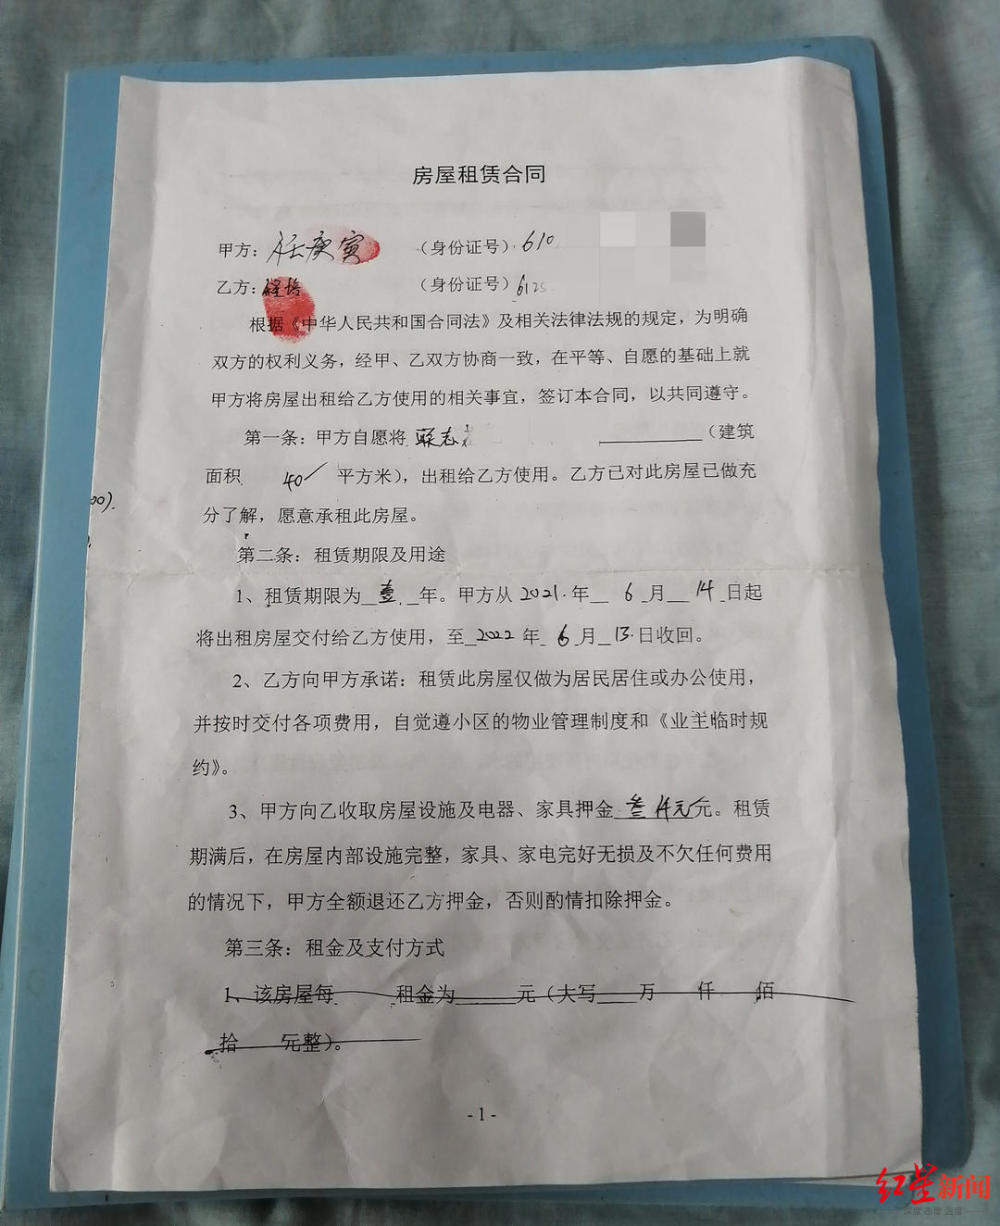 房屋租赁合同
甲方：任庚寅 （身份证号）610
乙方： （身份证号）6125
根据《中华人民共和国合同法》及相关法律法规的规定，为明确
双方的权利义务，经甲、乙双方协商一致，在平等、自愿的基础上就
甲方将房屋出租给乙方使用的相关事宜，签订本合同，以共同遵守。
第一条：甲方自愿将 联志 ________（建筑
面积 40 平方米），出租给乙方使用。乙方已对此房屋已做充
00).
分了解，愿意承租此房屋。
第二条：租赁期限及用途
1、租赁期限为_壹_年。甲方从2021.年_6_月_14_日起
将出租房屋交付给乙方使用，至_2022年_6_月_13.日收回。
2、乙方向甲方承诺：租赁此房屋仅做为居民居住或办公使用，
并按时交付各项费用，自觉遵小区的物业管理制度和《业主临时规
约》。
3、甲方向乙收取房屋设施及电器、家具押金_叁仟元元。租赁
期满后，在房屋内部设施完整，家具、家电完好无损及不欠任何费用
的情况下，甲方全额退还乙方押金，否则酌情扣除押金。
第三条：租金及支付方式
1、该房屋每 租金为_____元（大写___万 仟 佰
拾 元整）。
- 1 -
红星新闻
深度 态度 温度